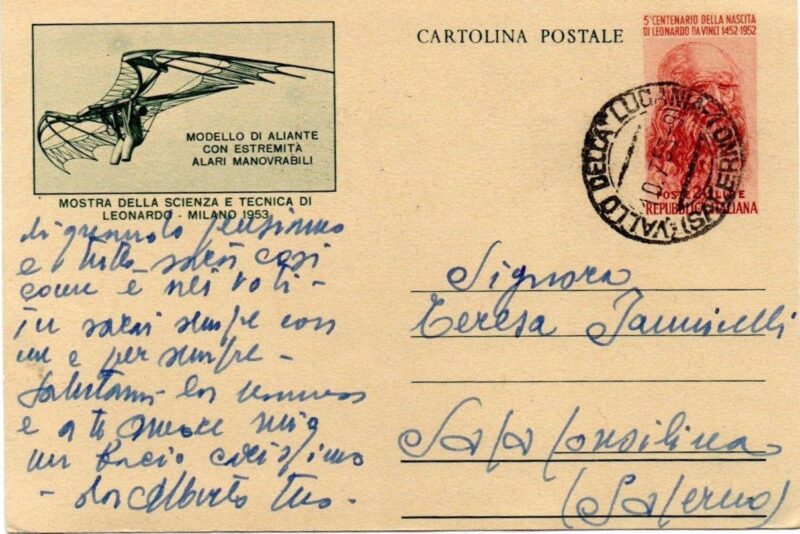 CARTOLINA POSTALE
5° CENTENARIO DELLA NASCITA
DI LEONARDO DA VINCI 1452·1952
POSTE LIRE
REPUBBLICA ITALIANA
VALLO DELLA LUCANIA (SALERNO)
MODELLO DI ALIANTE
CON ESTREMITÀ
ALARI MANOVRABILI
MOSTRA DELLA SCIENZA E TECNICA DI
LEONARDO - MILANO 1953
di
e tutto sarà così
come è nei voti -
tu sarai sempre con
me e per sempre -
Salutami
e a te mia
un bacio carissimo
- Alberto tuo -
Signora
Teresa
Sala Consilina
(Salerno)